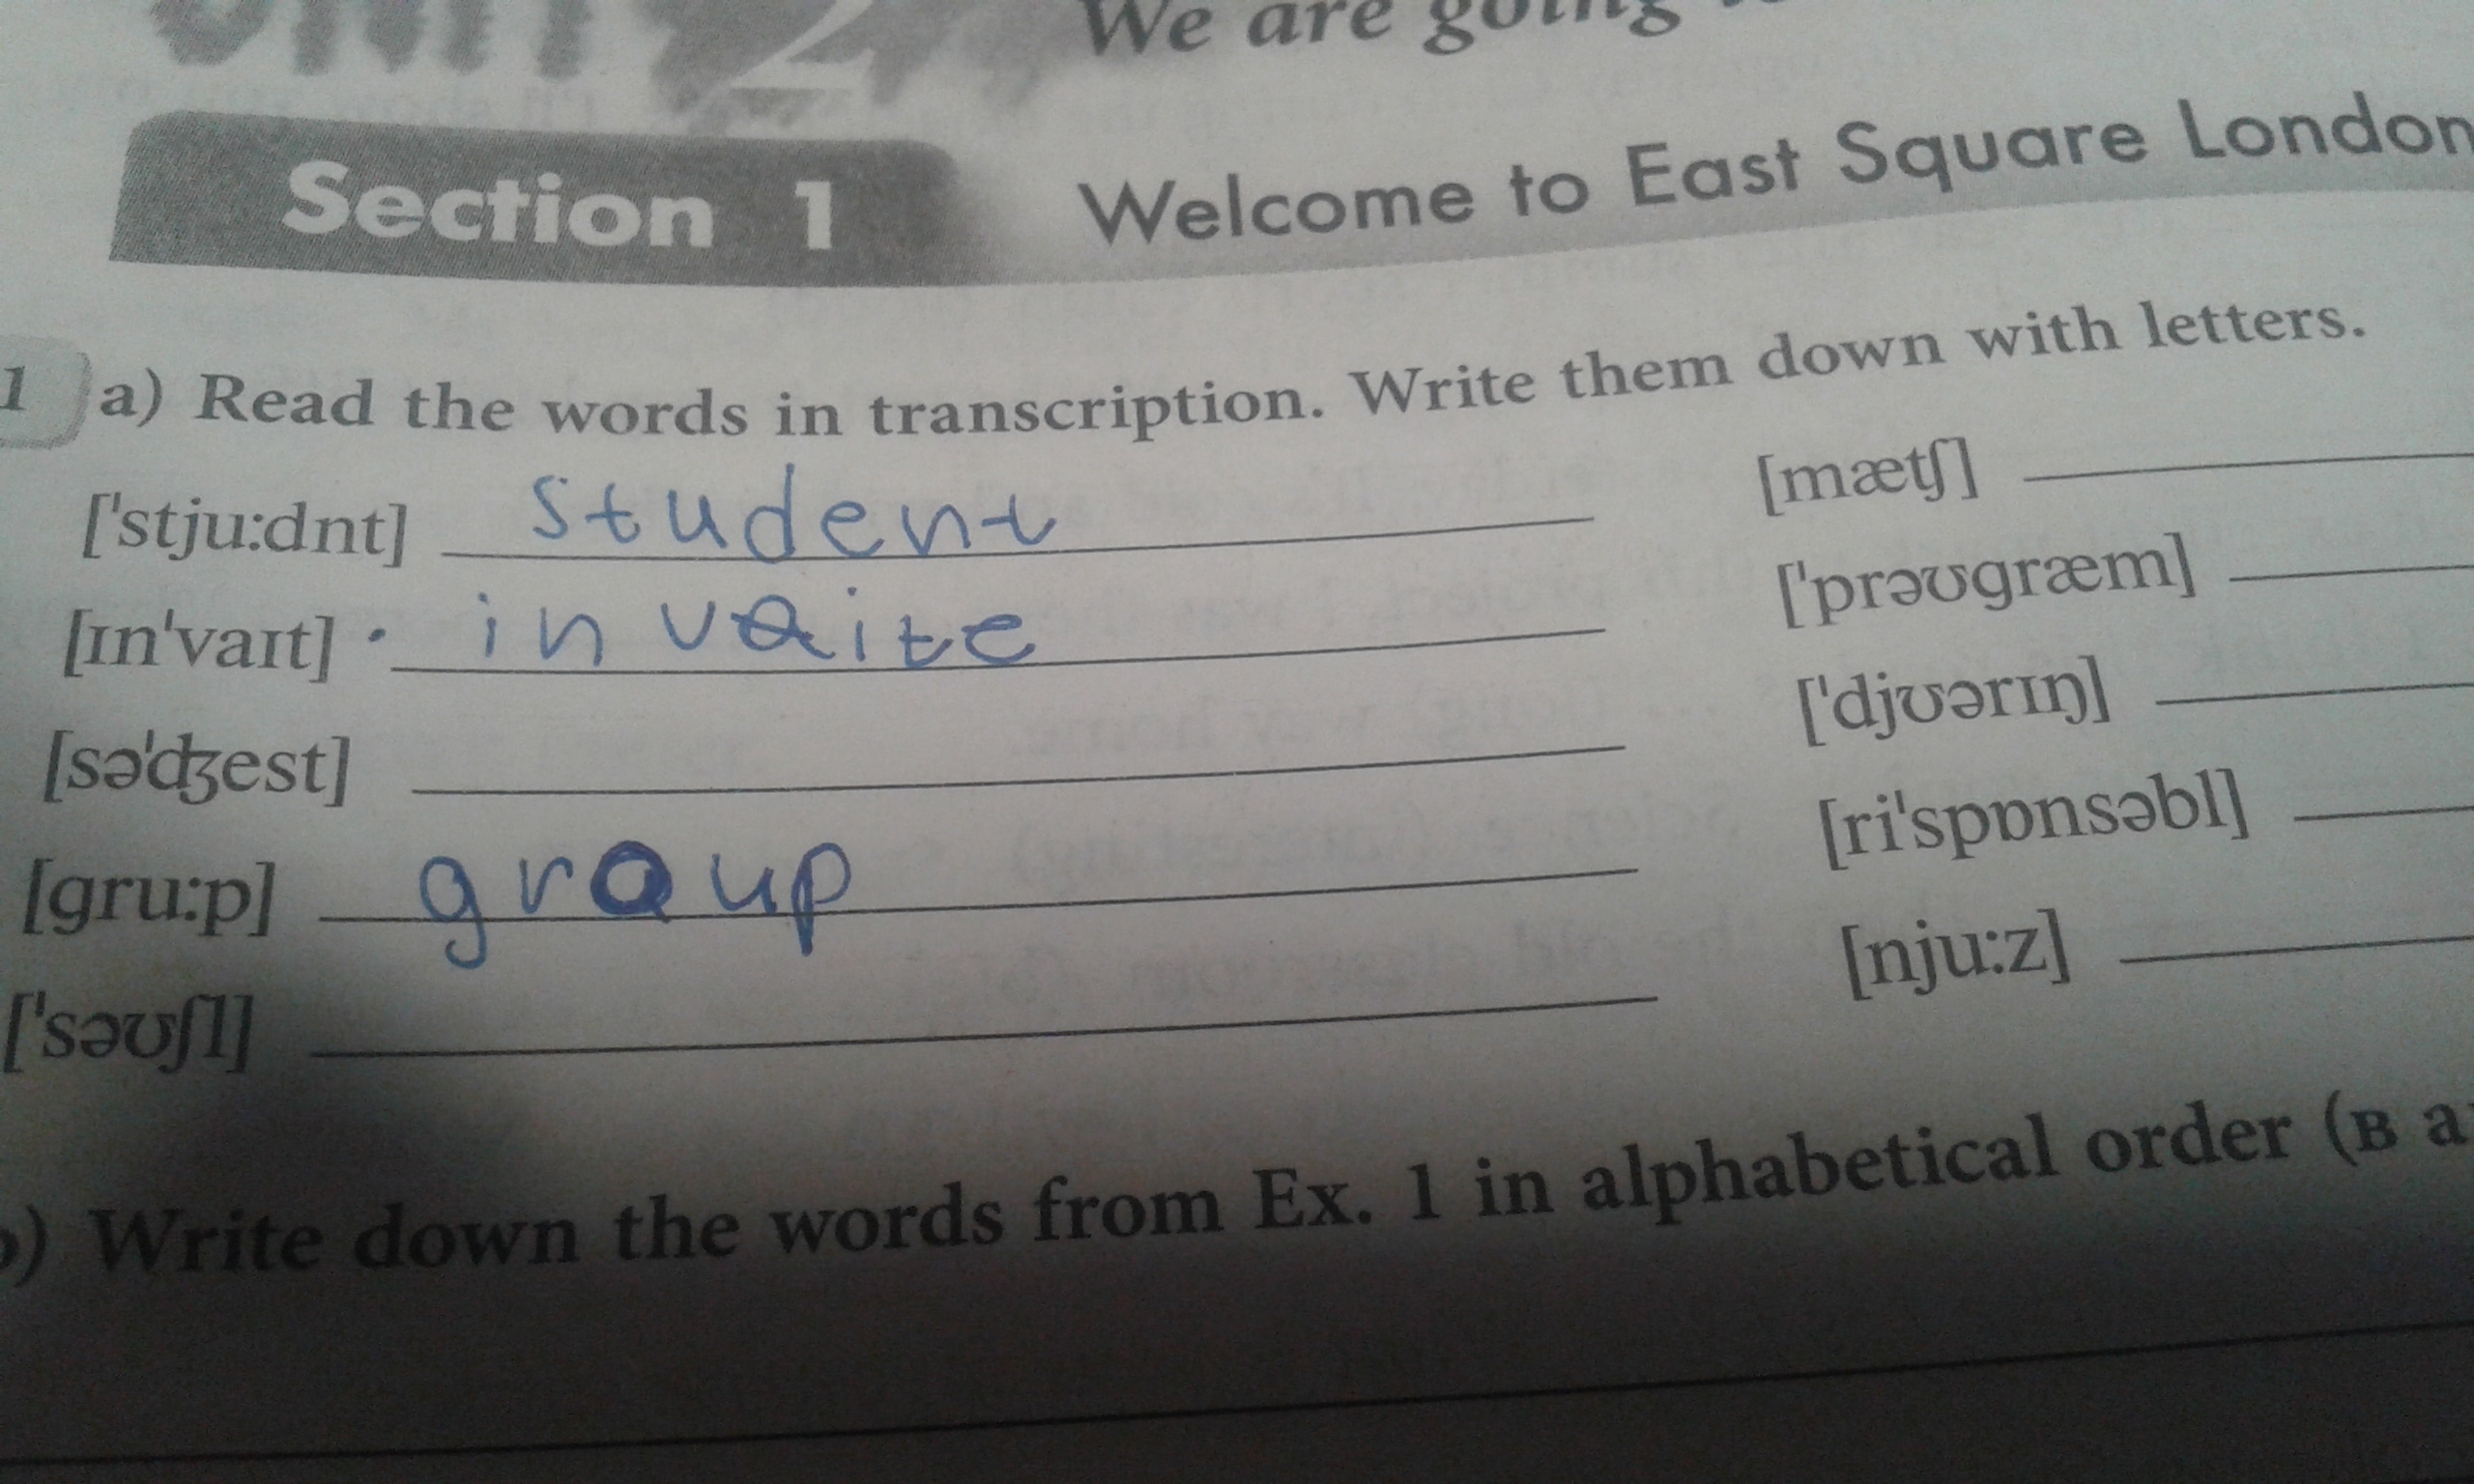 UNIT 2 We are going
Section 1 Welcome to East Square London
1 a) Read the words in transcription. Write them down with letters.
['stju:dnt] student
[ɪn'vaɪt] invaite
[sə'dʒest]
[gru:p] group
['səʊʃl]
[mætʃ]
['prəʊgræm]
['djʊərɪŋ]
[ri'spɒnsəbl]
[nju:z]
b) Write down the words from Ex. 1 in alphabetical order (в